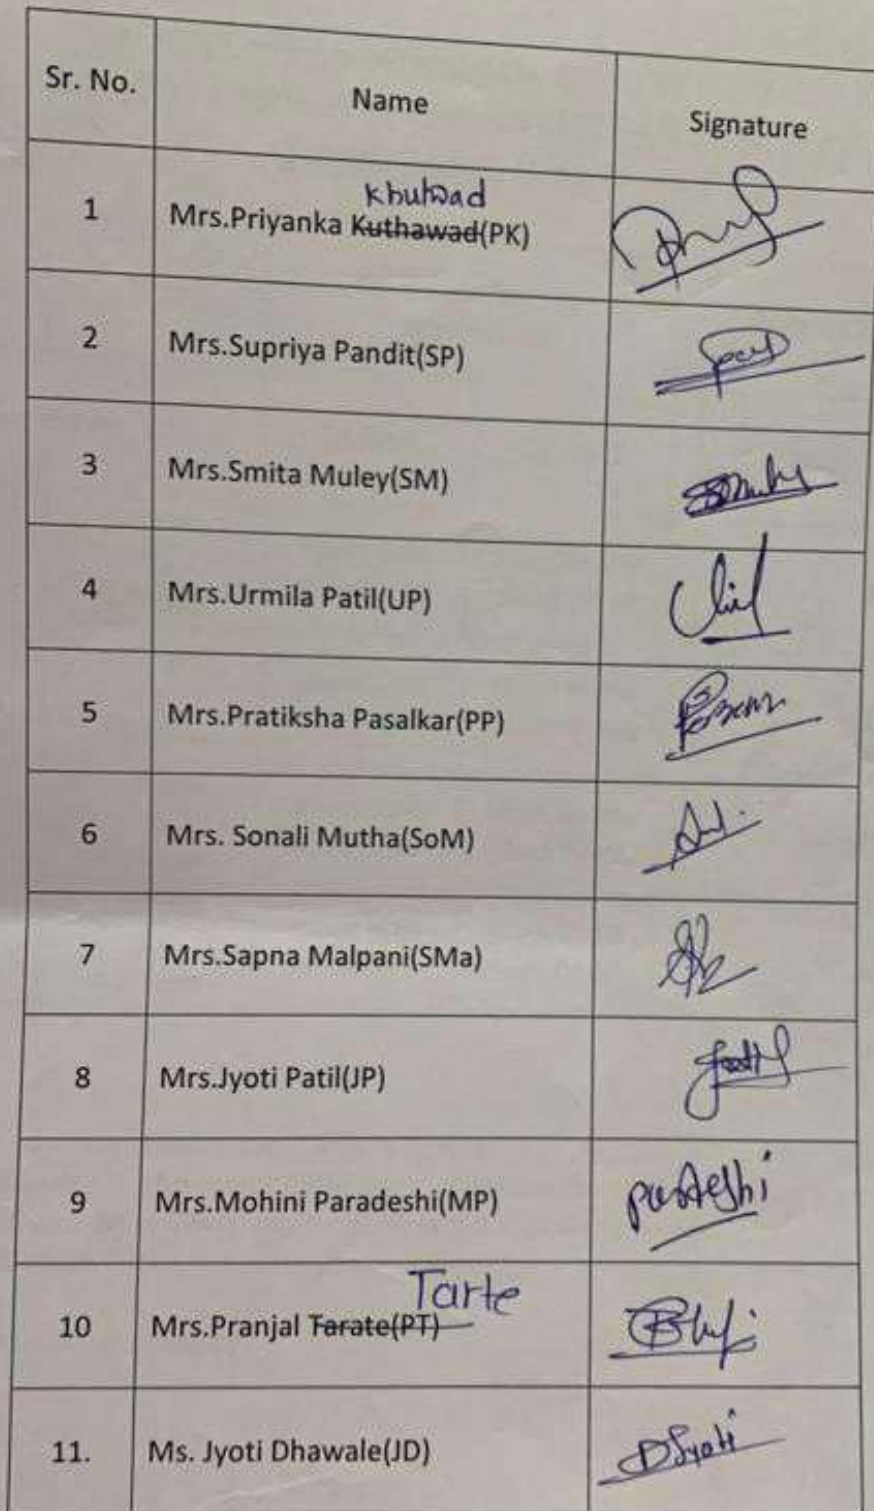 Sr. No. Name Signature
Khutwad
1 Mrs.Priyanka Kuthawad(PK)
2 Mrs.Supriya Pandit(SP)
3 Mrs.Smita Muley(SM)
4 Mrs.Urmila Patil(UP)
5 Mrs.Pratiksha Pasalkar(PP)
6 Mrs. Sonali Mutha(SoM)
7 Mrs.Sapna Malpani(SMa)
8 Mrs.Jyoti Patil(JP)
9 Mrs.Mohini Paradeshi(MP)
Tarte
10 Mrs.Pranjal Tarate(PT)
11. Ms. Jyoti Dhawale(JD) DJyoti